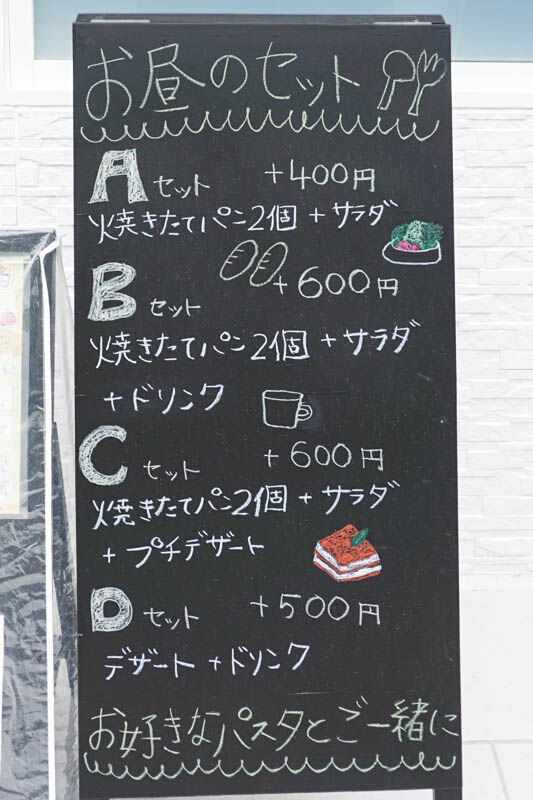 お昼のセット
Aセット +400円
焼きたてパン2個 + サラダ
Bセット +600円
焼きたてパン2個 + サラダ
+ ドリンク
Cセット +600円
焼きたてパン2個 + サラダ
+ プチデザート
Dセット +500円
デザート + ドリンク
お好きなパスタとご一緒に